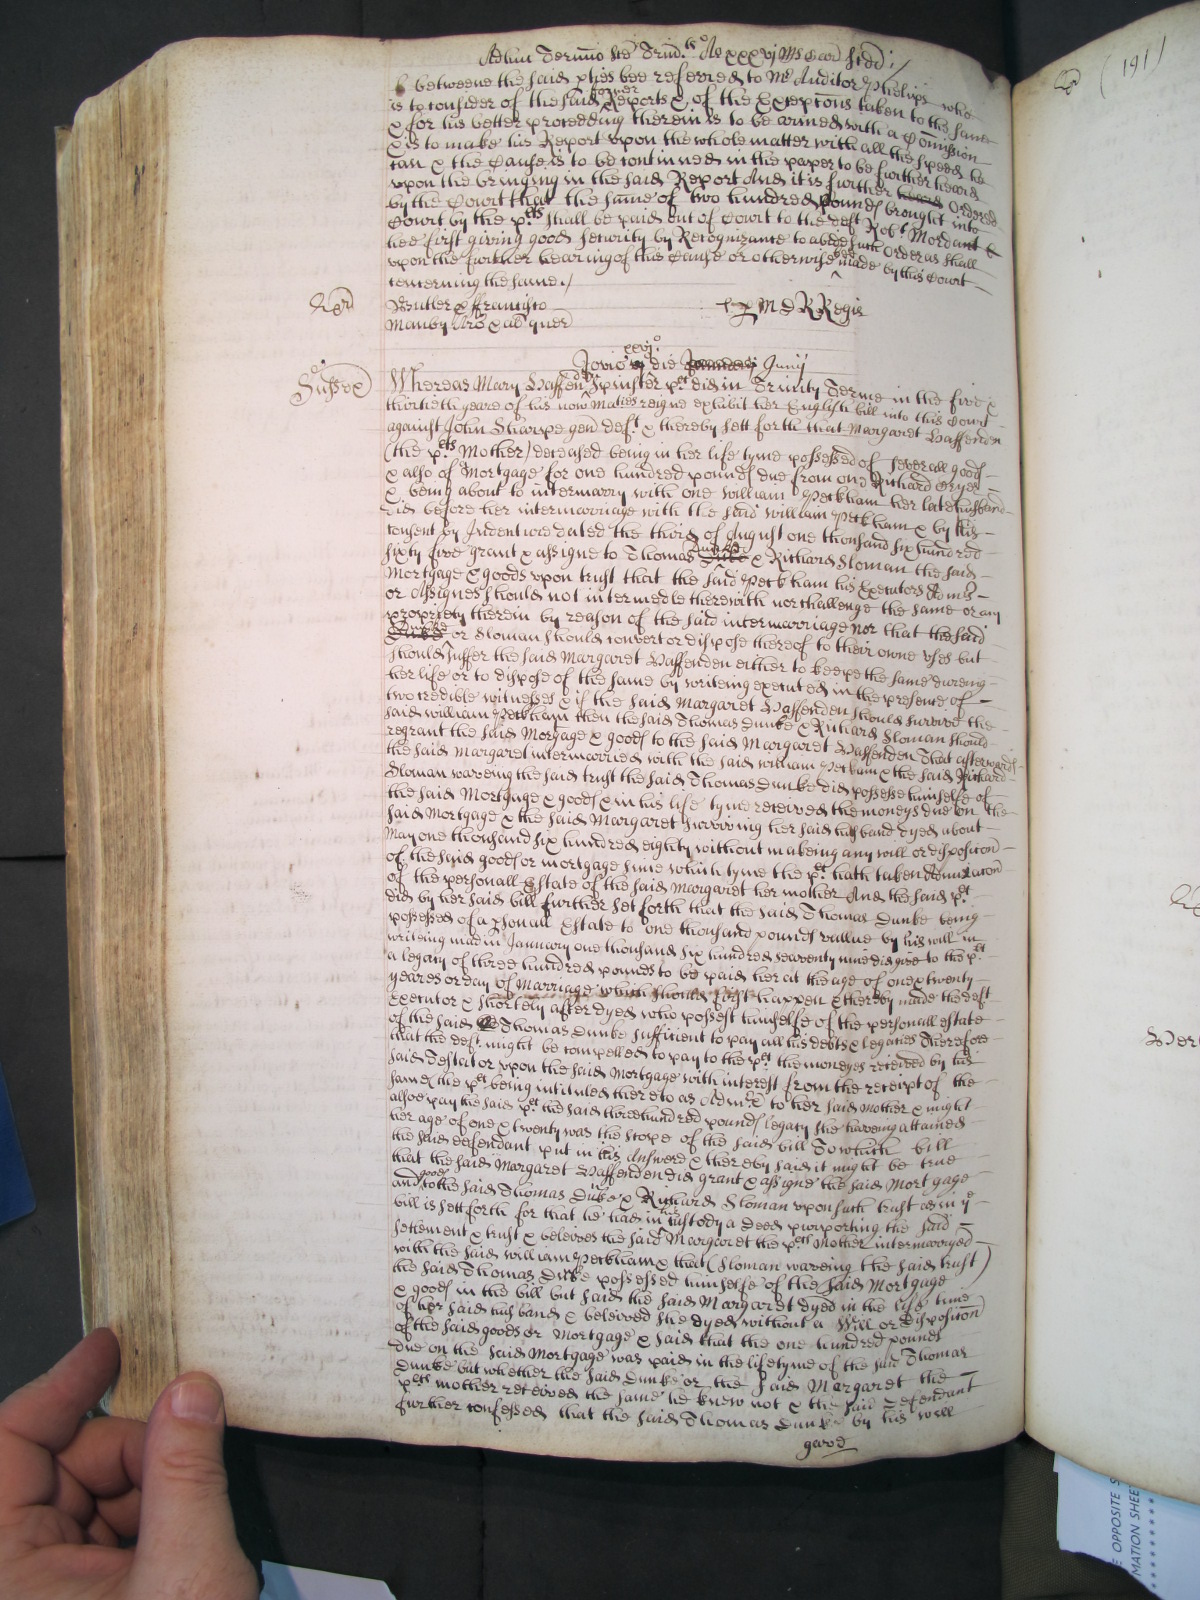 Adhuc Termino Ste Trin:tis Ao xxxvj Ms Car scdi:/
( 191 )
& betweene the said pties bee referred to Mr Auditor Phelips who
is to consider of the said former Reports & of the Excepcons taken to the same
& for his better proceeding therein is to be armed with a Comission
& is to make his Report upon the whole matter with all the speed he
can & the Cause is to be continued in the paper to be further heard
upon the bringing in the said Report And it is further heard Ordered
by the Court that the same of two hundred pounds brought into
Court by the plts shall be paid out of Court to the deft Robt Mordant &
hee first giving good security by Recognizance to abide such Order as shall
upon the further hearing of this Cause or otherwise bee made by this Court
concerning the same:/
Butler & ffrancisco
Manby Aro & ad quer
Ex p M D R Regis
Jovis xxvjo die January Junij
Sussex
Whereas Mary Haffenden Spinster plt did in Trinity Terme in the five &
thirtieth yeare of his now Maties reigne exhibit her English bill into this Court
against John Sharpe gen deft & thereby sett forth that Margaret Haffenden
(the plts Mother) deceased being in her life tyme possessed of severall goods
& also of Mortgage for one hundred pounds due from one Richard Cryer
& being about to intermarry with one William Peckham her late husband
did before her intermarriage with the said William Peckham & by his
consent by Indenture dated the third of August one thousand six hundred
sixty five grant & assigne to Thomas Dunke Duke & Richard Sloman the said
Mortgage & goods upon trust that the said Peckham his Executors Admrs
or Assignes should not intermedle therewith nor challenge the same or any
propriety therein by reason of the said intermarriage nor that the said
Dunke Duke or Sloman should convert or dispose thereof to their owne uses but
should suffer the said Margaret Haffenden either to keepe the same dureing
her life or to dispose of the same by writeing executed in the presence of
two credible witnesses & if the said Margaret Haffenden should survive the
said William Peckham then the said Thomas Dunke & Richard Sloman should
regrant the said Mortgage & goods to the said Margaret Haffenden That afterwards
the said Margaret intermarried with the said William Peckham & the said Richard
Sloman waveing the said trust the said Thomas Dunke did possesse himselfe of
the said Mortgage & goods & in his life tyme received the moneys due on the
said Mortgage & the said Margaret surviving her said husband dyed about
May one thousand six hundred eighty without makeing any will or disposicon
of the said goods or mortgage since which tyme the plt hath taken Admicon
of the personall Estate of the said Margaret her mother And the said plt
did by her said bill further set forth that the said Thomas Dunke being
possessed of a psonall Estate to one thousand pounds vallue by his will in
writeing made in January one thousand six hundred seaventy nine did give to the plt
a legacy of three hundred pounds to be paid her at the age of one & twenty
yeares or day of Marriage which should first happen & thereby made the deft
Executor & shortely after dyed who possest himselfe of the personall estate
of the said Thomas Dunke sufficient to pay all his debts & legacies Therefore
that the deft might be compelled to pay to the plt the moneyes received by his
said Testator upon the said Mortgage with interest from the receipt of the
same the plt being intituled thereto as Admrx to her said Mother & might
alsoe pay the said plt the said three hundred pounds legacy she haveing attained
her age of one & twenty was the scope of the said bill To which bill
the said defendant put in his Answere & thereby said it might be true
that the said Margaret Haffenden did grant & assigne the said Mortgage
and goods to the said Thomas Dunke & Richard Sloman upon such trust as in ye
bill is sett forth for that he had in his custody a Deed purporting the said
settlement & trust & beleives the said Margaret the plts Mother intermarryed
with the said William Peckham & that (Sloman waveing the said trust)
the said Thomas Dunke possessed himselfe of the said Mortgage
& goods in the bill but said the said Margaret dyed in the life time
of her said husband & beleived she dyed without a Will or Disposicon
of the said goods or Mortgage & said that the one hundred pounds
due on the said Mortgage was paid in the lifetyme of the said Thomas
Dunke but whether the said Dunke or the said Margaret the
plts mother received the same he knew not & the said Defendant
further confessed that the said Thomas Dunke by his will
gave